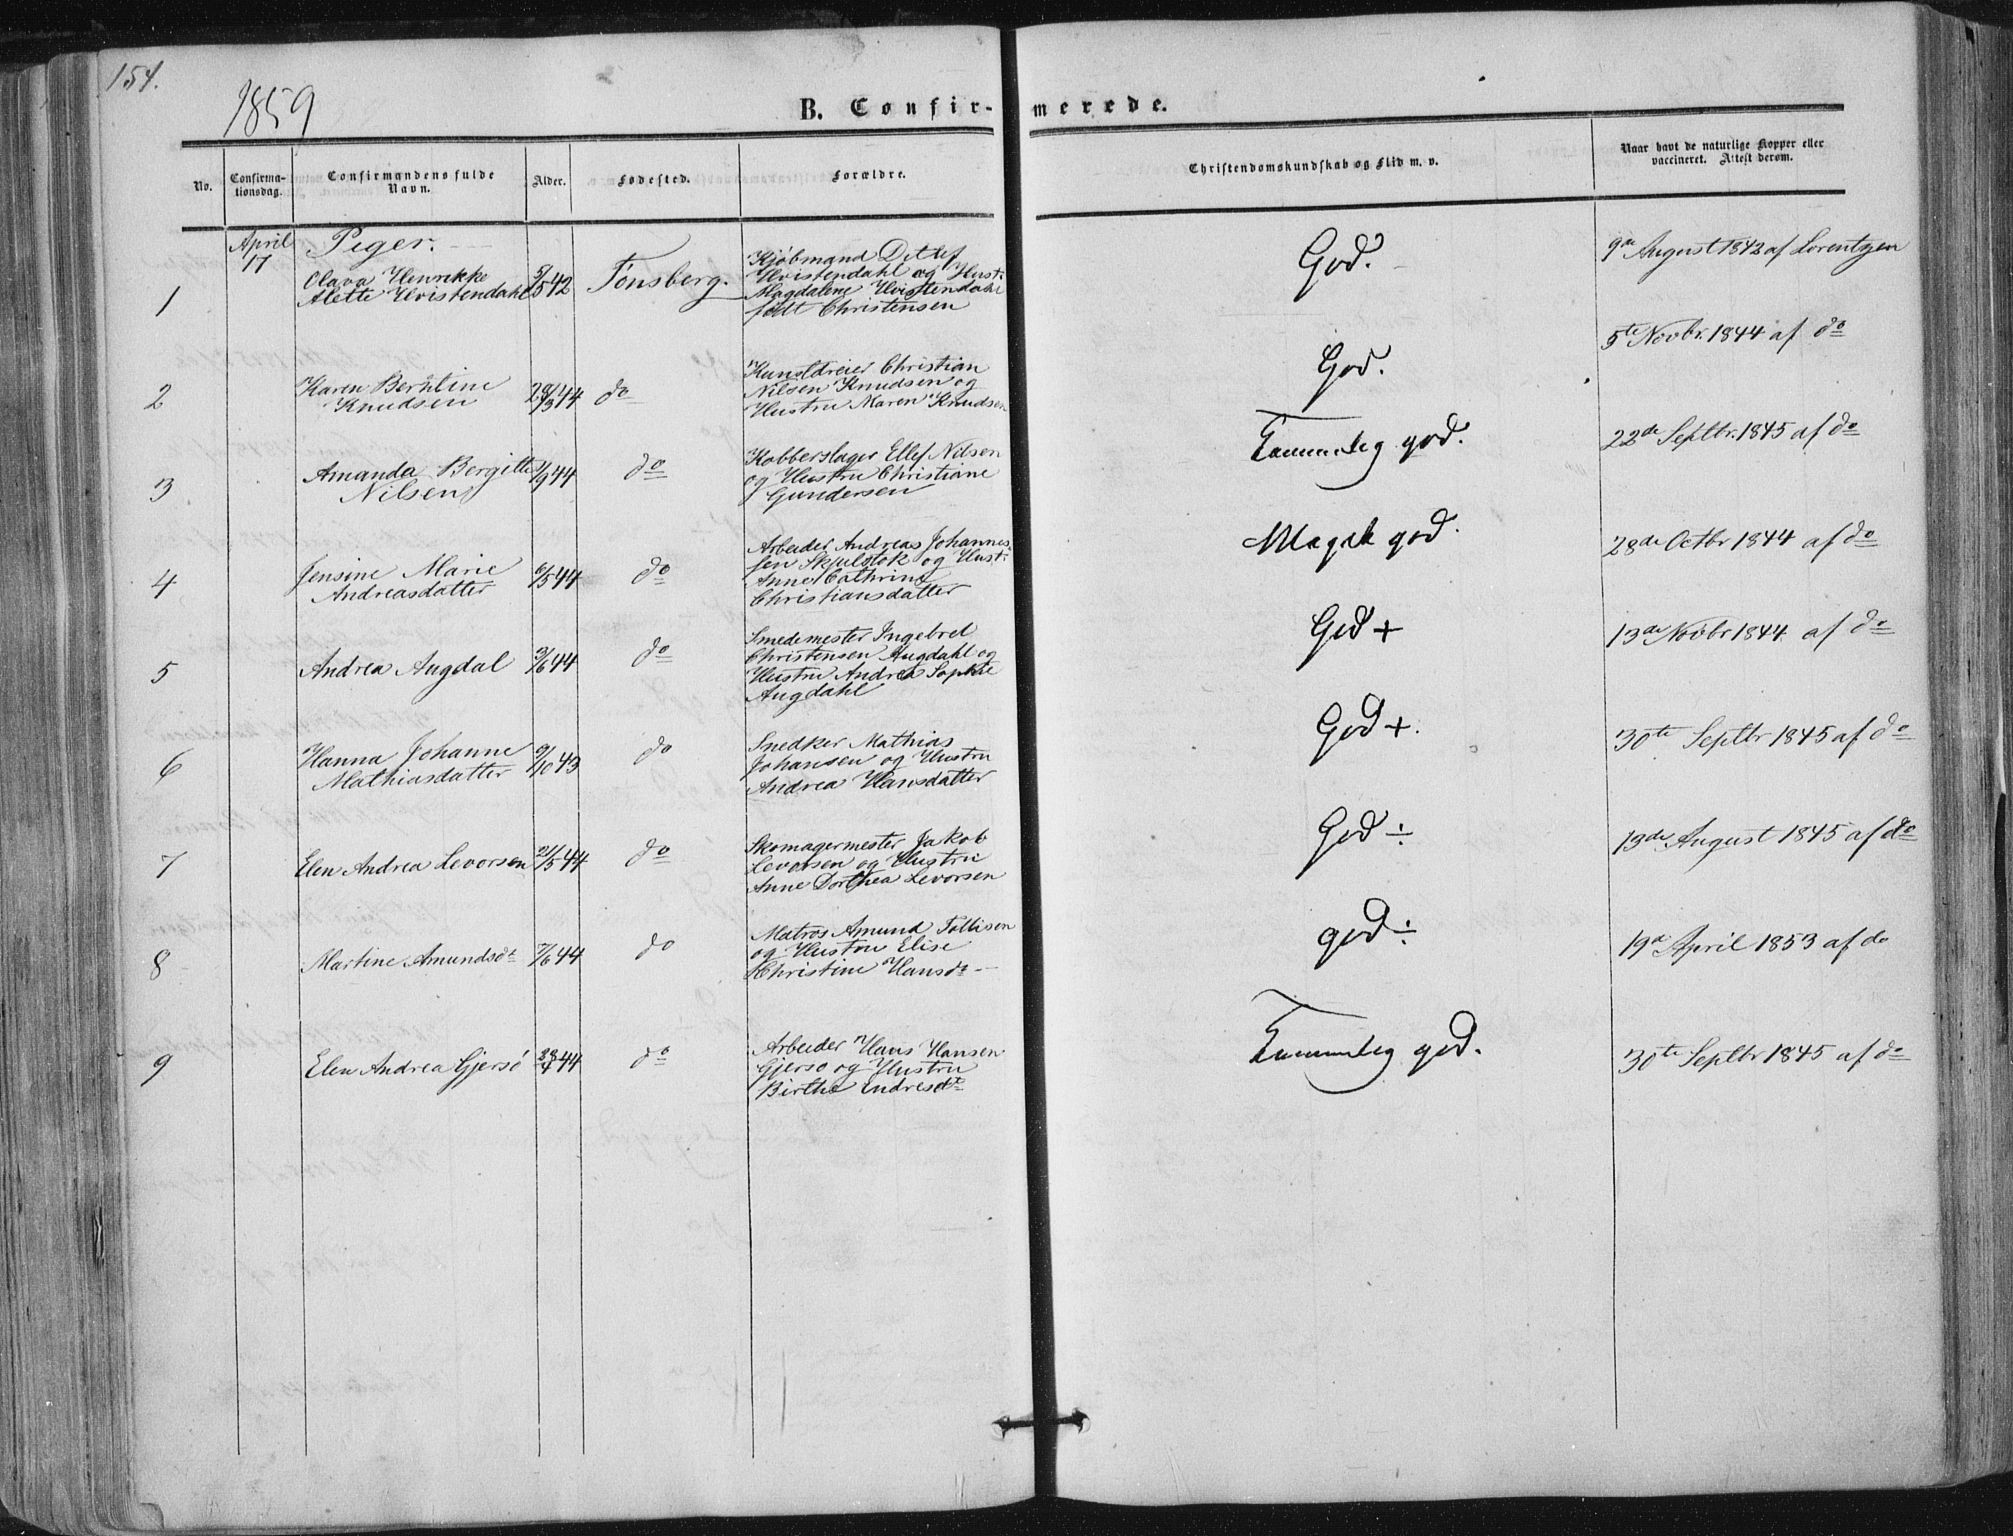 154.
1859
B. Confir- merede.
No.
Confirma-
tionsdag.
Confirmandens fulde
Navn.
Alder.
Fødested.
Forældre.
Christendomskundskab og Flid m. v.
Naar havt de naturlige Kopper eller
vaccineret. Attest derom.
April
17
Piger.
1
Olava Henrikke
Alette Hvistendahl
5/5 42
Tønsberg.
Kjøbmand Detlef
Hvistendahl og Hust:
Magdalene Hvistendahl
født Christensen
God.
9de August 1842 af Lorentzen
2
Karen Berntine
Knudsen
28/3 44
do
Kunstdreier Christian
Nilsen Knudsen og
Hustru Maren Knudsen
God.
5te Novbr. 1844 af do
3
Amanda Bergitte
Nilsen
/9 44
do
Kobberslager Ellef Nilsen
og Hustru Christiane
Gundersen
Temmelig god.
22de Septbr. 1845 af do
4
Jensine Marie
Andreasdatter
6/5 44
do
Arbeider Andreas Johannes-
sen Skjulstok og Hust:
Anne Cathrine
Christiansdatter
Meget god.
28de Octbr 1844 af do
5
Andrea Augdal
3/6 44
do
Smedemester Ingebret
Christensen Augdahl og
Hustru Andrea Sophie
Augdahl
God +
13de Novbr 1844 af do
6
Hanna Johanne
Mathiasdatter
9/10 43
do
Snedker Mathias
Johansen og Hustru
Andrea Hansdatter
God +.
30te Septbr 1845 af do
7
Elen Andrea Levorsen
21/5 44
do
Skomagermester Jakob
Levorsen og Hustru
Anne Dorthea Levorsen
God ÷
13de August 1845 af do
8
Martine Amundsdt
7/6 44
do
Matros Amund Tollisen
og Hustru Elise
Christine Hansdt
god ÷
19de April 1853 af do
9
Elen Andrea Gjersø
28/4 44
do
Arbeider Hans Hansen
Gjersø og Hustru
Birthe Endresdt
Temmelig god.
30te Septbr 1845 af do